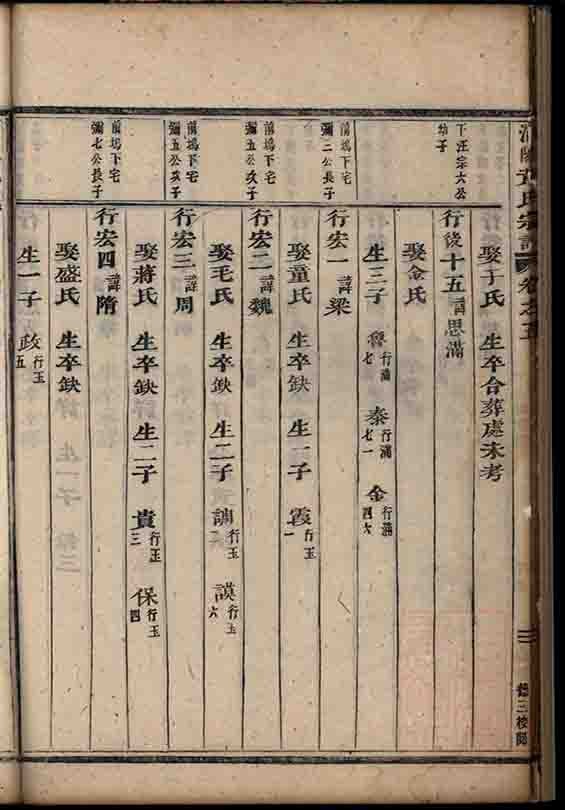 氏宗譜 卷之五
娶于氏 生卒合葬處未考
下汪宗六公
幼子
行後十五諱思滿
娶金氏
生三子 魯行滿七 泰行滿七一 金行滿四六
前塢下宅
彌二公長子
行宏一諱梁
娶童氏 生卒缺 生一子 霞行玉一
前塢下宅
彌五公次子
行宏二諱魏
娶毛氏 生卒缺 生二子 行玉二 謨行玉六
前塢下宅
彌五公幼子
行宏三諱周
娶蔣氏 生卒缺 生二子 貴行玉三 保行玉四
前塢下宅
彌七公長子
行宏四諱隋
娶盛氏 生卒缺
生一子 政行玉五